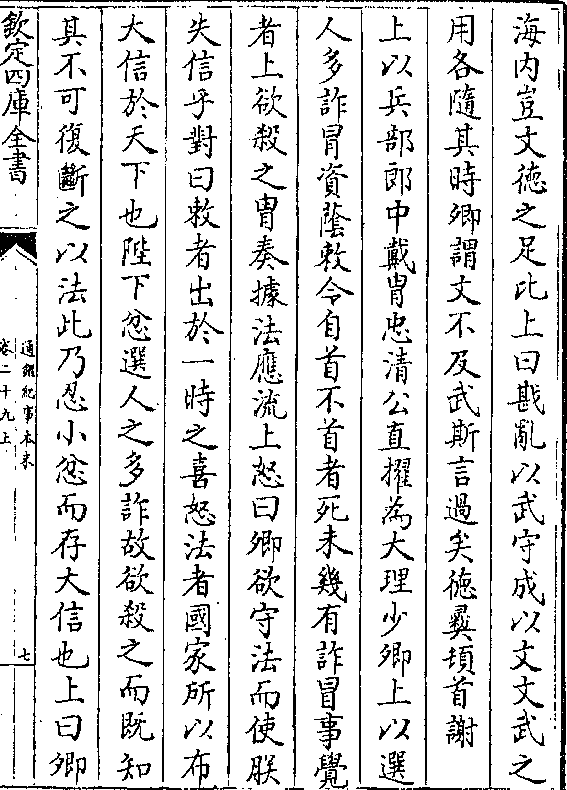 海内豈文徳之足比上曰戡亂以武守成以文文武之
用各隨其時卿謂文不及武斯言過矣徳彛頓首謝
上以兵部郎中戴胄忠清公直擢為大理少卿上以選
人多詐冒資䕃敕令自首不首者死未幾有詐冒事覺
者上欲殺之胄奏據法應流上怒曰卿欲守法而使朕
失信乎對曰敕者出於一時之喜怒法者國家所以布
大信於天下也陛下忿選人之多詐故欲殺之而既知
其不可復斷之以法此乃忍小忿而存大信也上曰卿
欽定四庫全書
通鑑紀事本末
卷二十九上
七